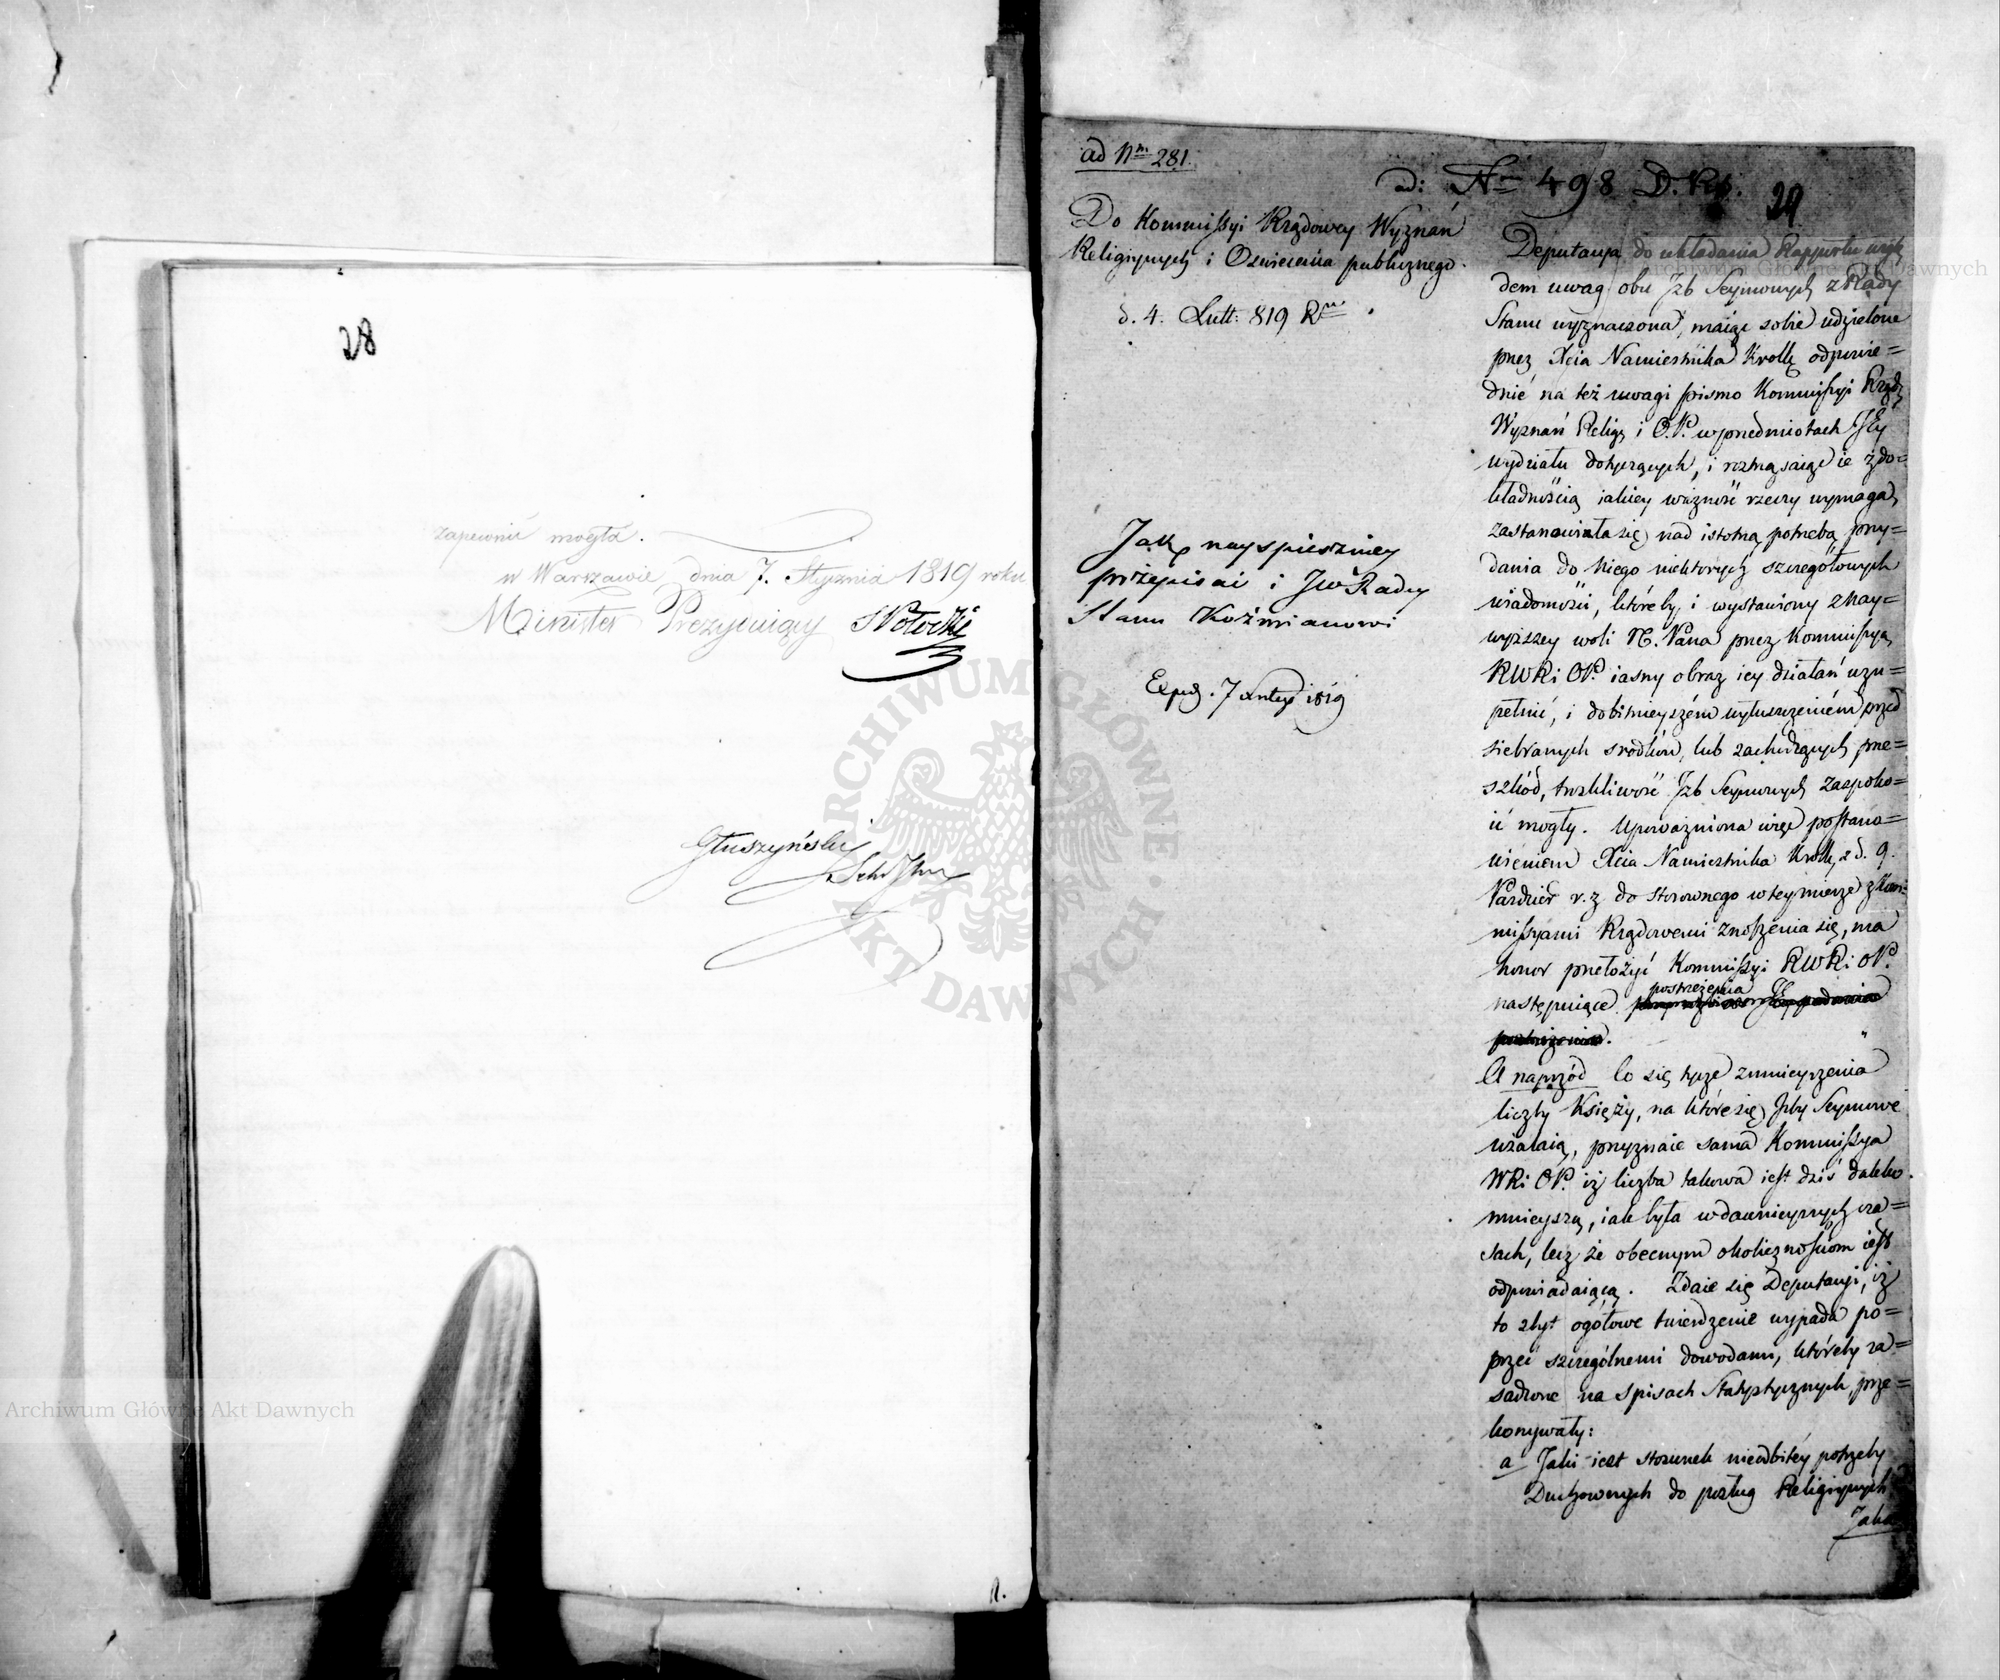 28
zapewnić mogła.
w Warszawie dnia 7. Stycznia 1819 roku
Minister Prezyduiący SPotocki
Głuszyński
ad Nrm 281.
ad: Nrm 498 D. Rp.
29
Do Kommissyi Rządowey Wyznań
Religiynych i Oswiecenia publicznego.
d. 4. Lutt: 819 R
Jak nayspieszniey
przepisać i JW Radcy
Stanu Koźmianowi
Exped. 7 Lutego 1819
Deputacya do układania Rapportu wzglę
dem uwag obu Jzb Seymowych z Rady
Stanu wyznaczona, maiąc sobie udzielone
przez Xcia Namiestnika Krollg odpowie=
dnie na też uwagi pismo Kommissyi Rządz
Wyznań Relig i O.P. w przedmiotach JEy
wydziału dotyczących, i roztrząsaiąc ie z do=
kładnością iakiey ważność rzeczy wymaga,
zastanawiała się nad istotną potrzebą przy=
dania do niego niektórych szczegółowych
wiadomości, któreby i wystawiony z nay=
wyższey woli N. Pana przez Kommissyą
RWRi OP. iasny obraz iey działań uzu=
pełnić, i dobitnieyszém wyłuszczeniem przed
siebranych srodków, lub zachodzących prze=
szkód, troskliwość Jzb Seymowych zaspoko=
ić mogły. Upoważniona więc postano=
wieniem Xcia Namiestnika Krollg z d. 9.
Paździer r. z do stosownego w tey mierze z Kom=
missyami Rządowemi znoszenia się, ma
honor przełożyć Kommissyi RWRi OP.
następuiące postrzeżenia
postrzeżenia.
A naprzód Co się tycze zmnieyszenia
liczby Księży, na które się Jzby Seymowe
użalaią, przyznaie sama Kommissya
WRi OP. iż liczba takowa iest dziś daleko
mnieyszą, iak była w dawnieyszych cza=
sach, lecz że obecnym okolicznościom iest
odpowiadaiącą. Zdaie się Deputacyi, iż
to zbyt ogółowe twierdzenie wypada po=
przeć szczególnemi dowodami, któreby za=
sadzone na spisach Statystycznych, prze=
konywały:
a Jaki iest stosunek nieodbitéy potrzeby
Duchownych do posług Religiynych
Jaka
Archiwum Główne Akt Dawnych
Archiwum Główne Akt Dawnych
ARCHIWUM GŁÓWNE AKT DAWNYCH